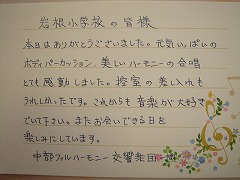 岩根小学校の皆様
本日はありがとうございました。元気いっぱいの
ボディパーカッション、美しいハーモニーの合唱
とても感動しました。控室の差し入れも
うれしかったです。これからも音楽が大好き
でいて下さい。またお会いできる日を
楽しみにしています。
中部フィルハーモニー交響楽団